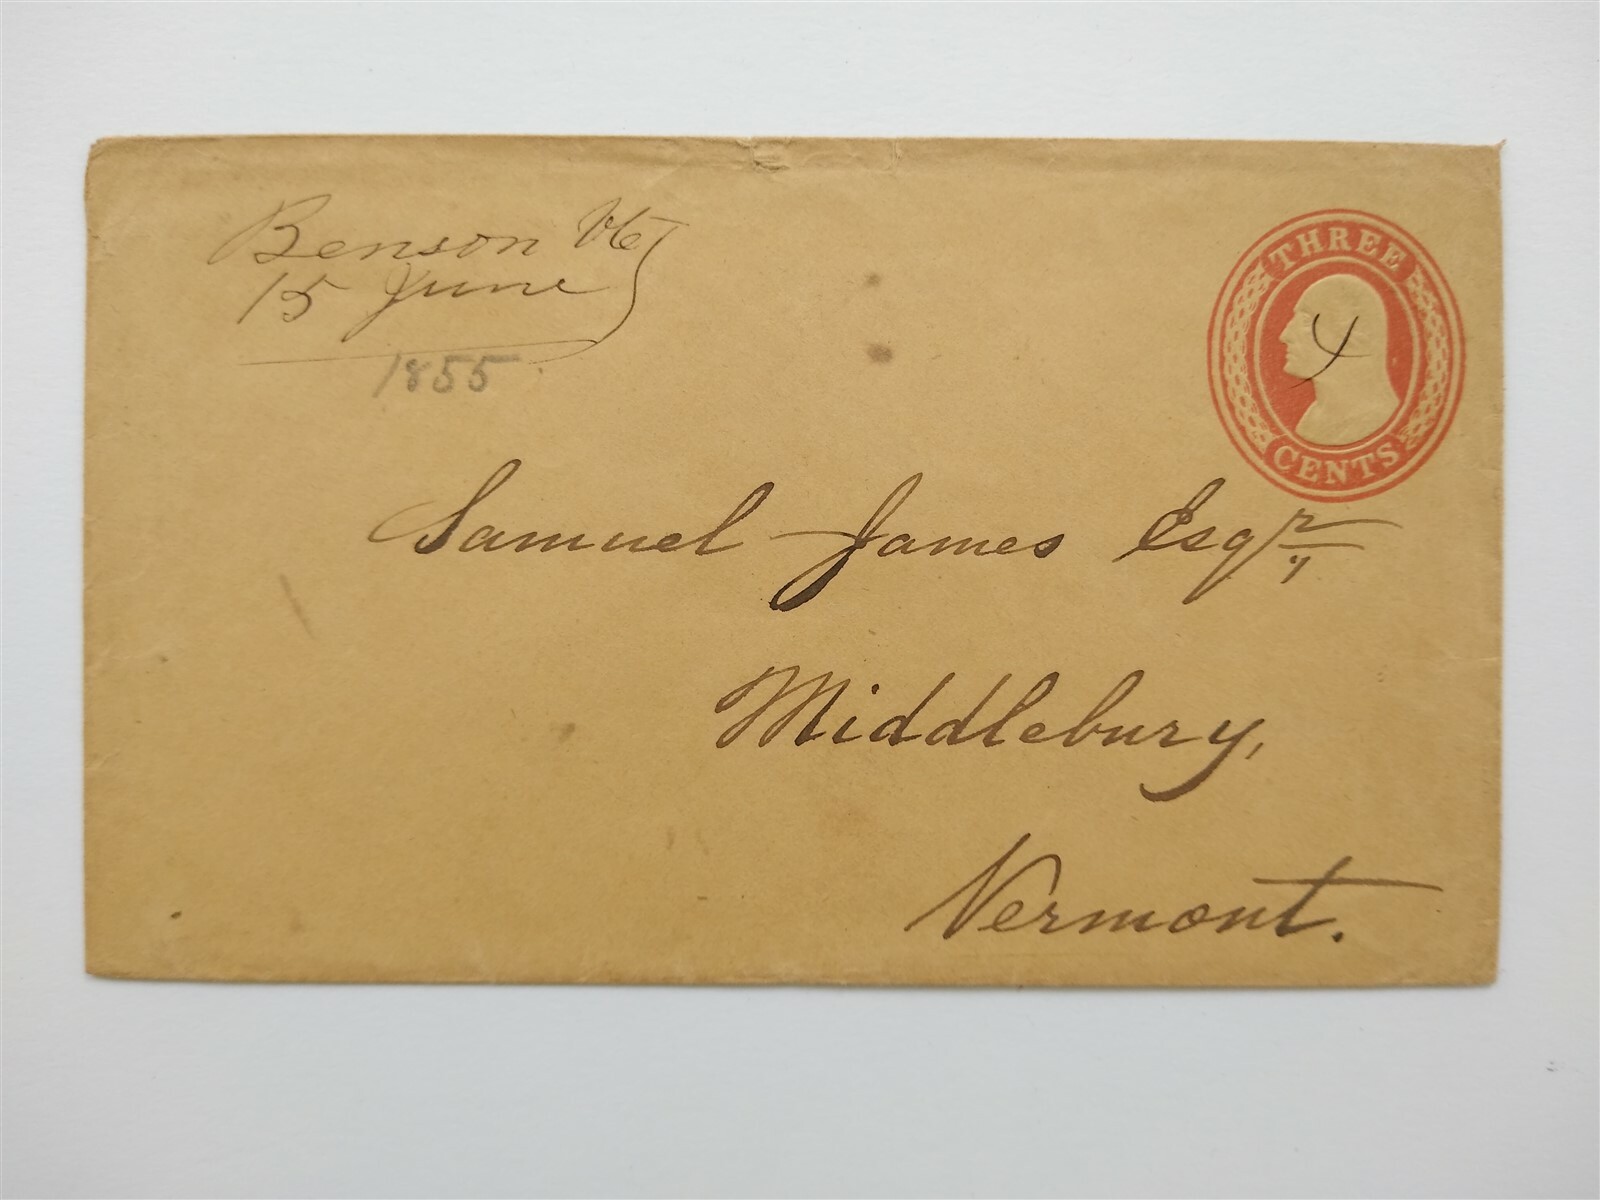 Benson Vt
15 June
1855
THREE
CENTS
Samuel James Esqr,
Middlebury,
Vermont.